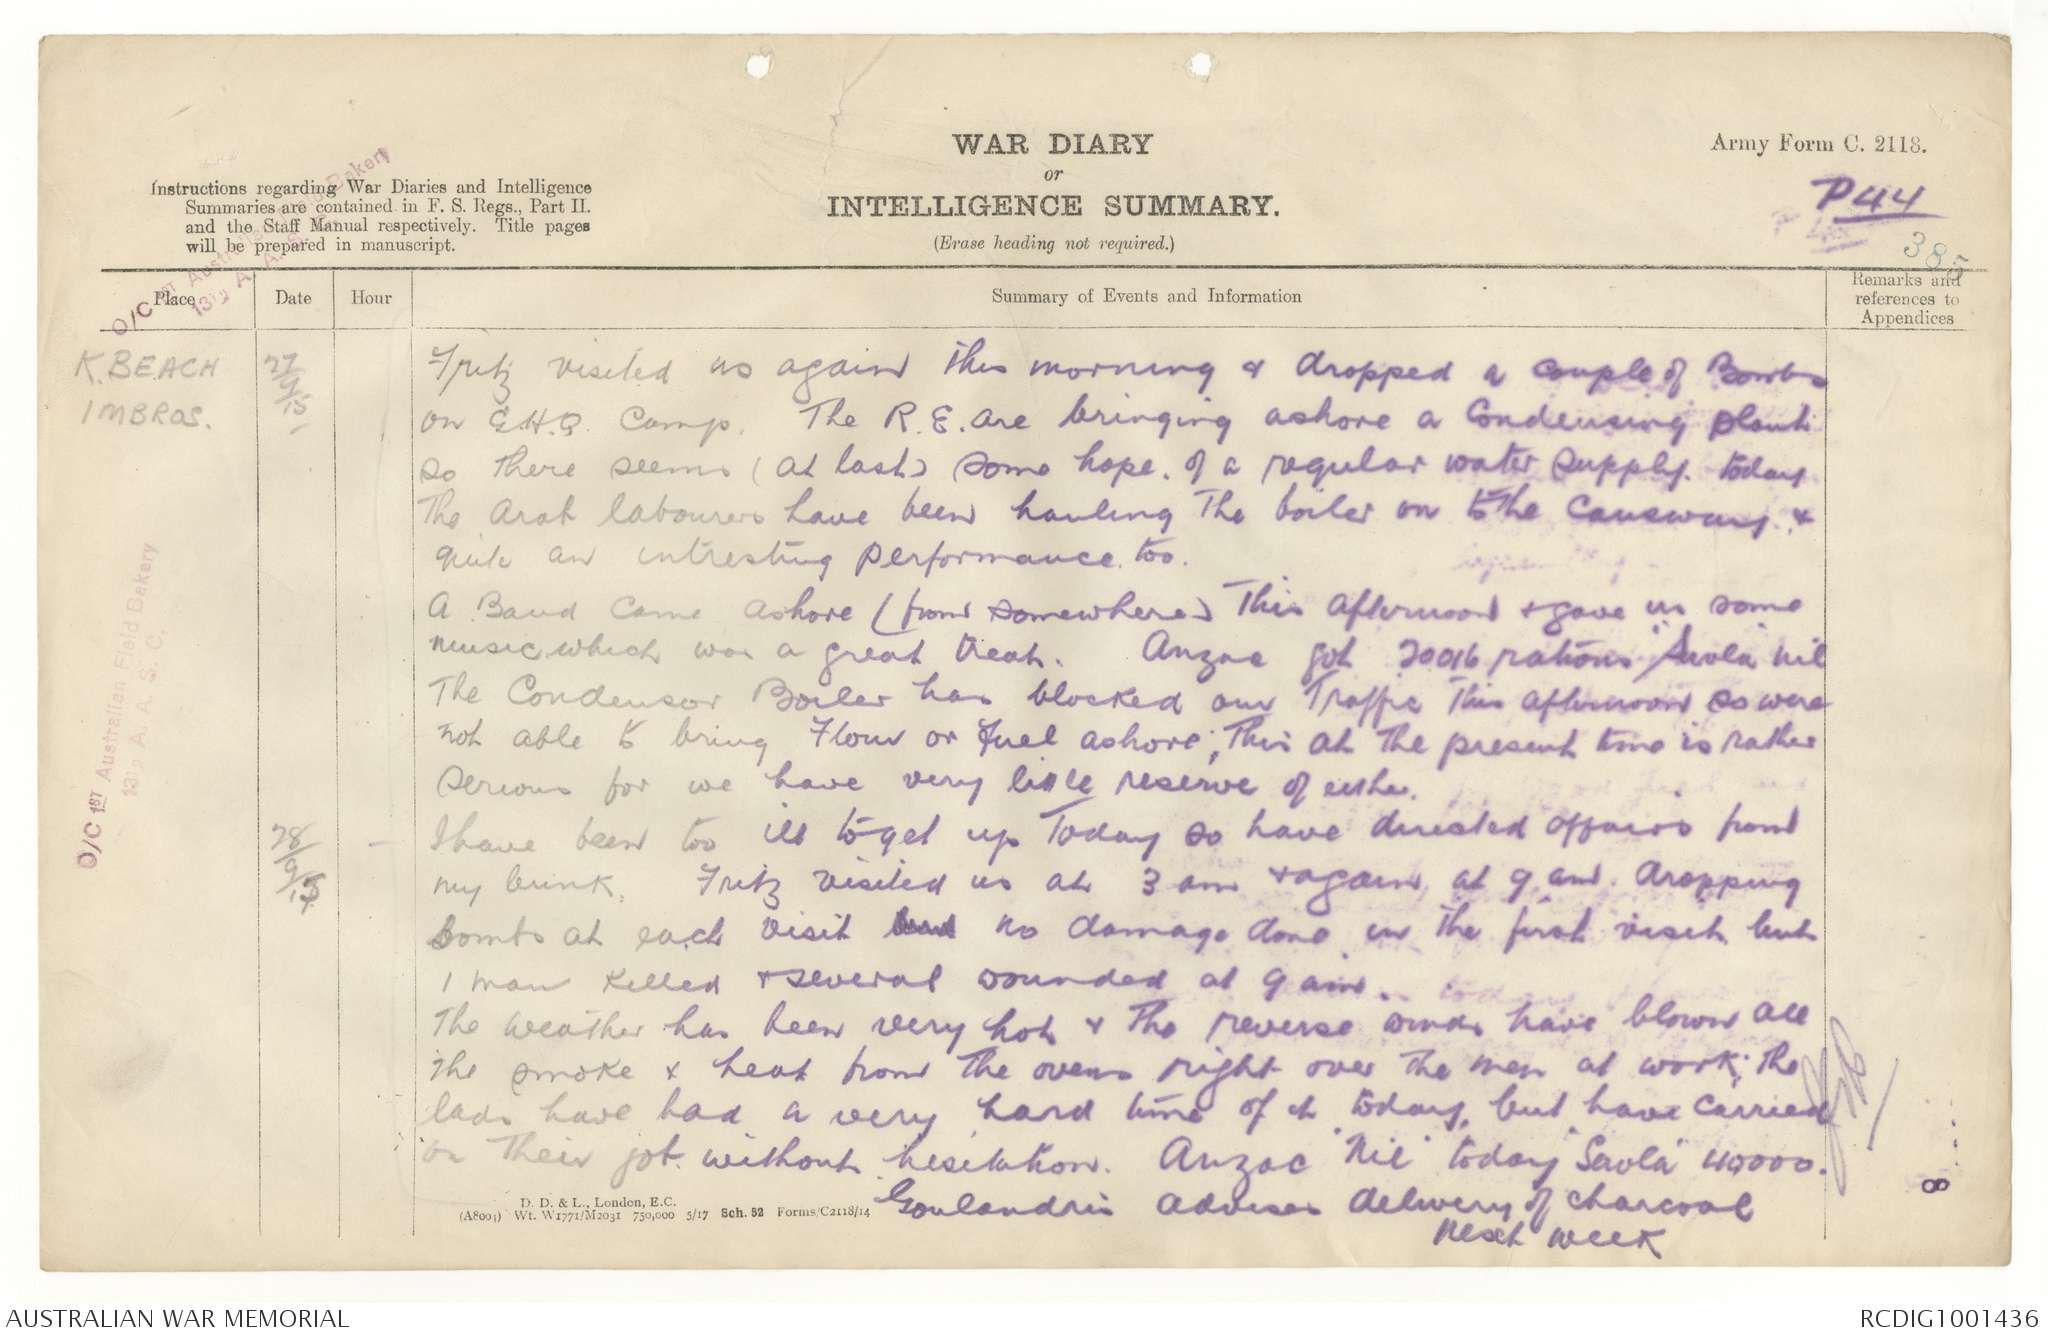 WAR DIARY
or
INTELLIGENCE SUMMARY.
(Erase heading not required.)
Army Form C. 2118.
P44
385
Instructions regarding War Diaries and Intelligence
Summaries are contained in F. S. Regs., Part II.
and the Staff Manual respectively. Title pages
will be prepared in manuscript.
O/C 1ST Australian Field Bakery
13TH A. A. S. C.
Place
Date
Hour
Summary of Events and Information
Remarks and
references to
Appendices
K. BEACH
IMBROS.
27/9/15
Fritz visited us again this morning & dropped a couple of Bombs
on G.H.Q. Camp. The R.E. are bringing ashore a Condensing plant
so there seems (at last) some hope of a regular water supply. today
The Arab labourers have been hauling The boiler on to the Causeway &
quite an intresting performance too.
A Band came ashore (from somewhere) This afternoon & gave us some
music which was a great treat. Anzac got rations "Suvla" nil
The Condensor Boiler has blocked our Traffic This afternoon so were
not able to bring Flour or Fuel ashore, This at The present time is rather
serious for we have very little reserve of either.
28/9/15 -
I have been too ill to get up Today so have directed affairs from
my bunk. Fritz visited us at 3 am & again at 9 am. dropping
bombs at each visit no damage done in the first visit but
1 man killed & several wounded at 9 am.
The weather has been very hot & The reverse winds have blown all
the smoke & heat from The ovens right over The men at work; The
lads have had a very hard time of it today, but have carried
on Their job without hesitation. Anzac "Nil" today "Suvla" 40000.
Goulandris advises delivery of charcoal
next week
8
D. D. & L., London, E.C.
(A8004) Wt. W1771/M2031 750,000 5/17 Sch. 52 Forms/C2118/14
O/C 1ST Australian Field Bakery
13TH A. A. S. C.
AUSTRALIAN WAR MEMORIAL
RCDIG1001436